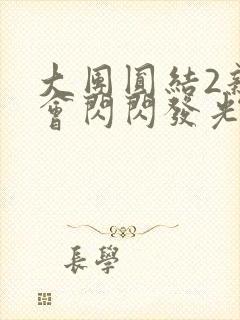 大團圓結2新
會閃閃發光
長學